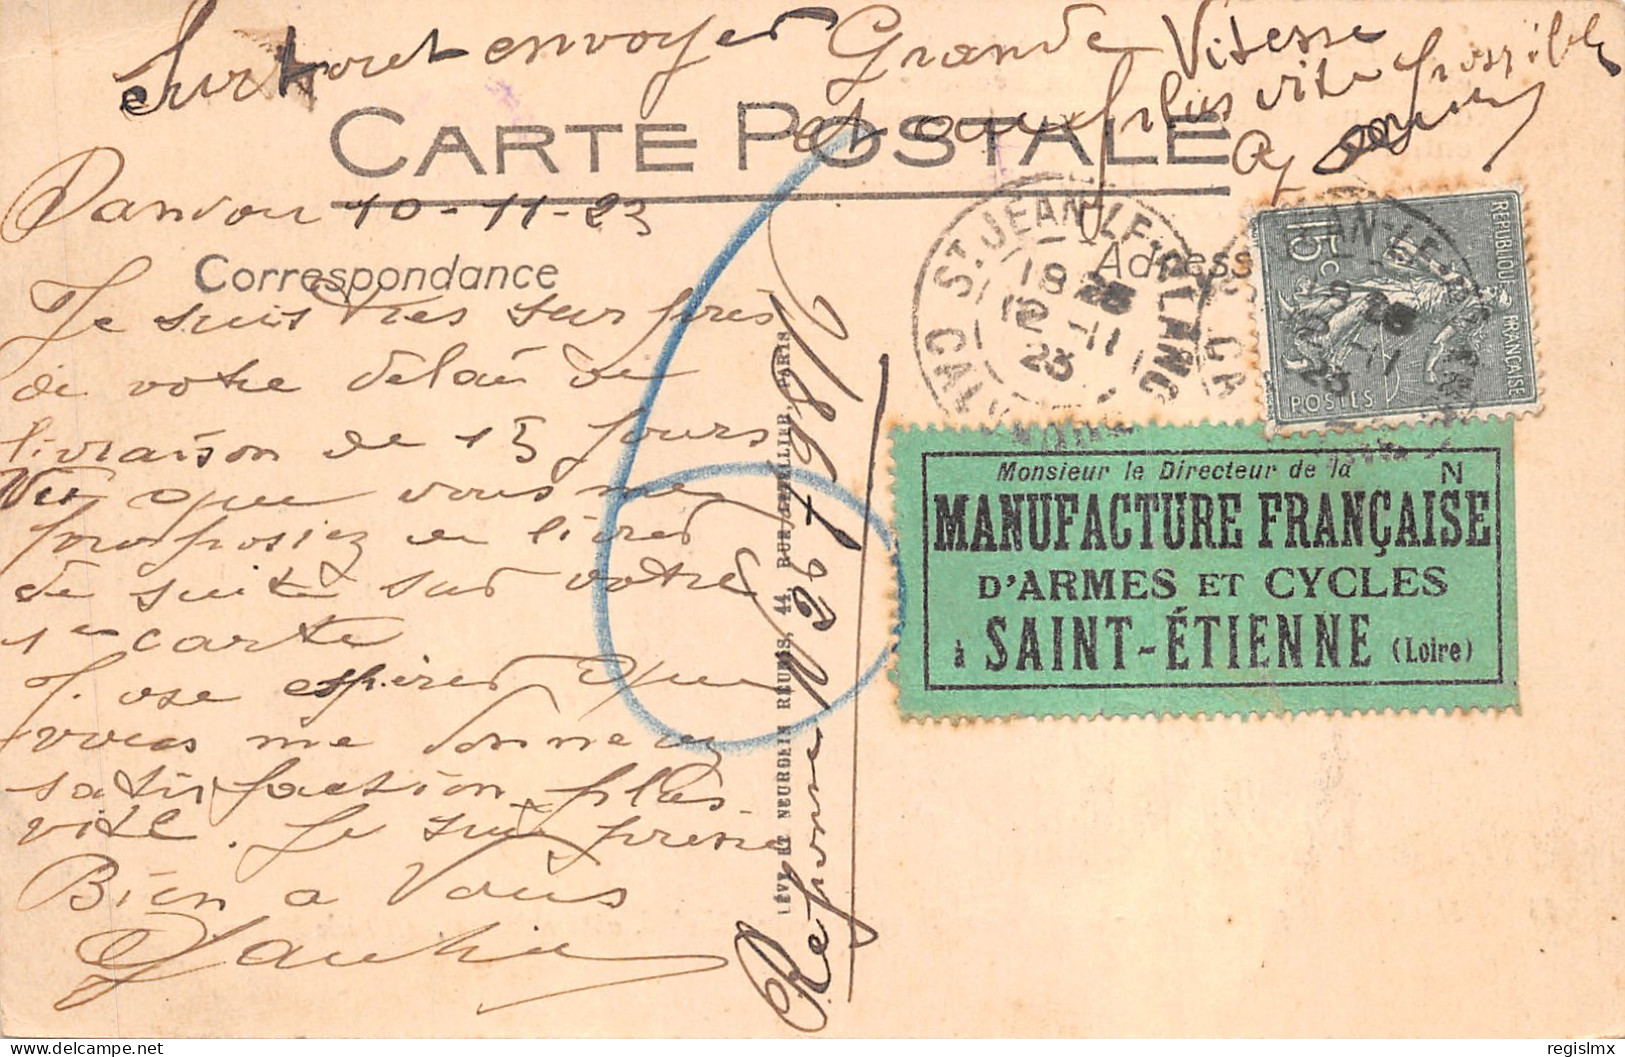 Surtout envoyer Grande Vitesse
et au plus vite possible
CARTE POSTALE
10-11-23
Correspondance
Adresse
Je suis très surpris
de votre délai de
livraison de 15 jours
Vu que vous me
proposiez de livrer
de suite sur votre
1re carte
J'ose espérer que
vous me donnerez
satisfaction plus
vite. Je suis pressé
Bien a Vous
Reponse N 28
LÉVY ET NEURDEIN RÉUNIS, 44, RUE LETELLIER, PARIS
ST JEAN-LE-BLANC
CALVADOS
18
12-11
23
RÉPUBLIQUE FRANÇAISE
15c
POSTES
Monsieur le Directeur de la
N
MANUFACTURE FRANÇAISE
D'ARMES ET CYCLES
à SAINT-ÉTIENNE (Loire)
regislmx